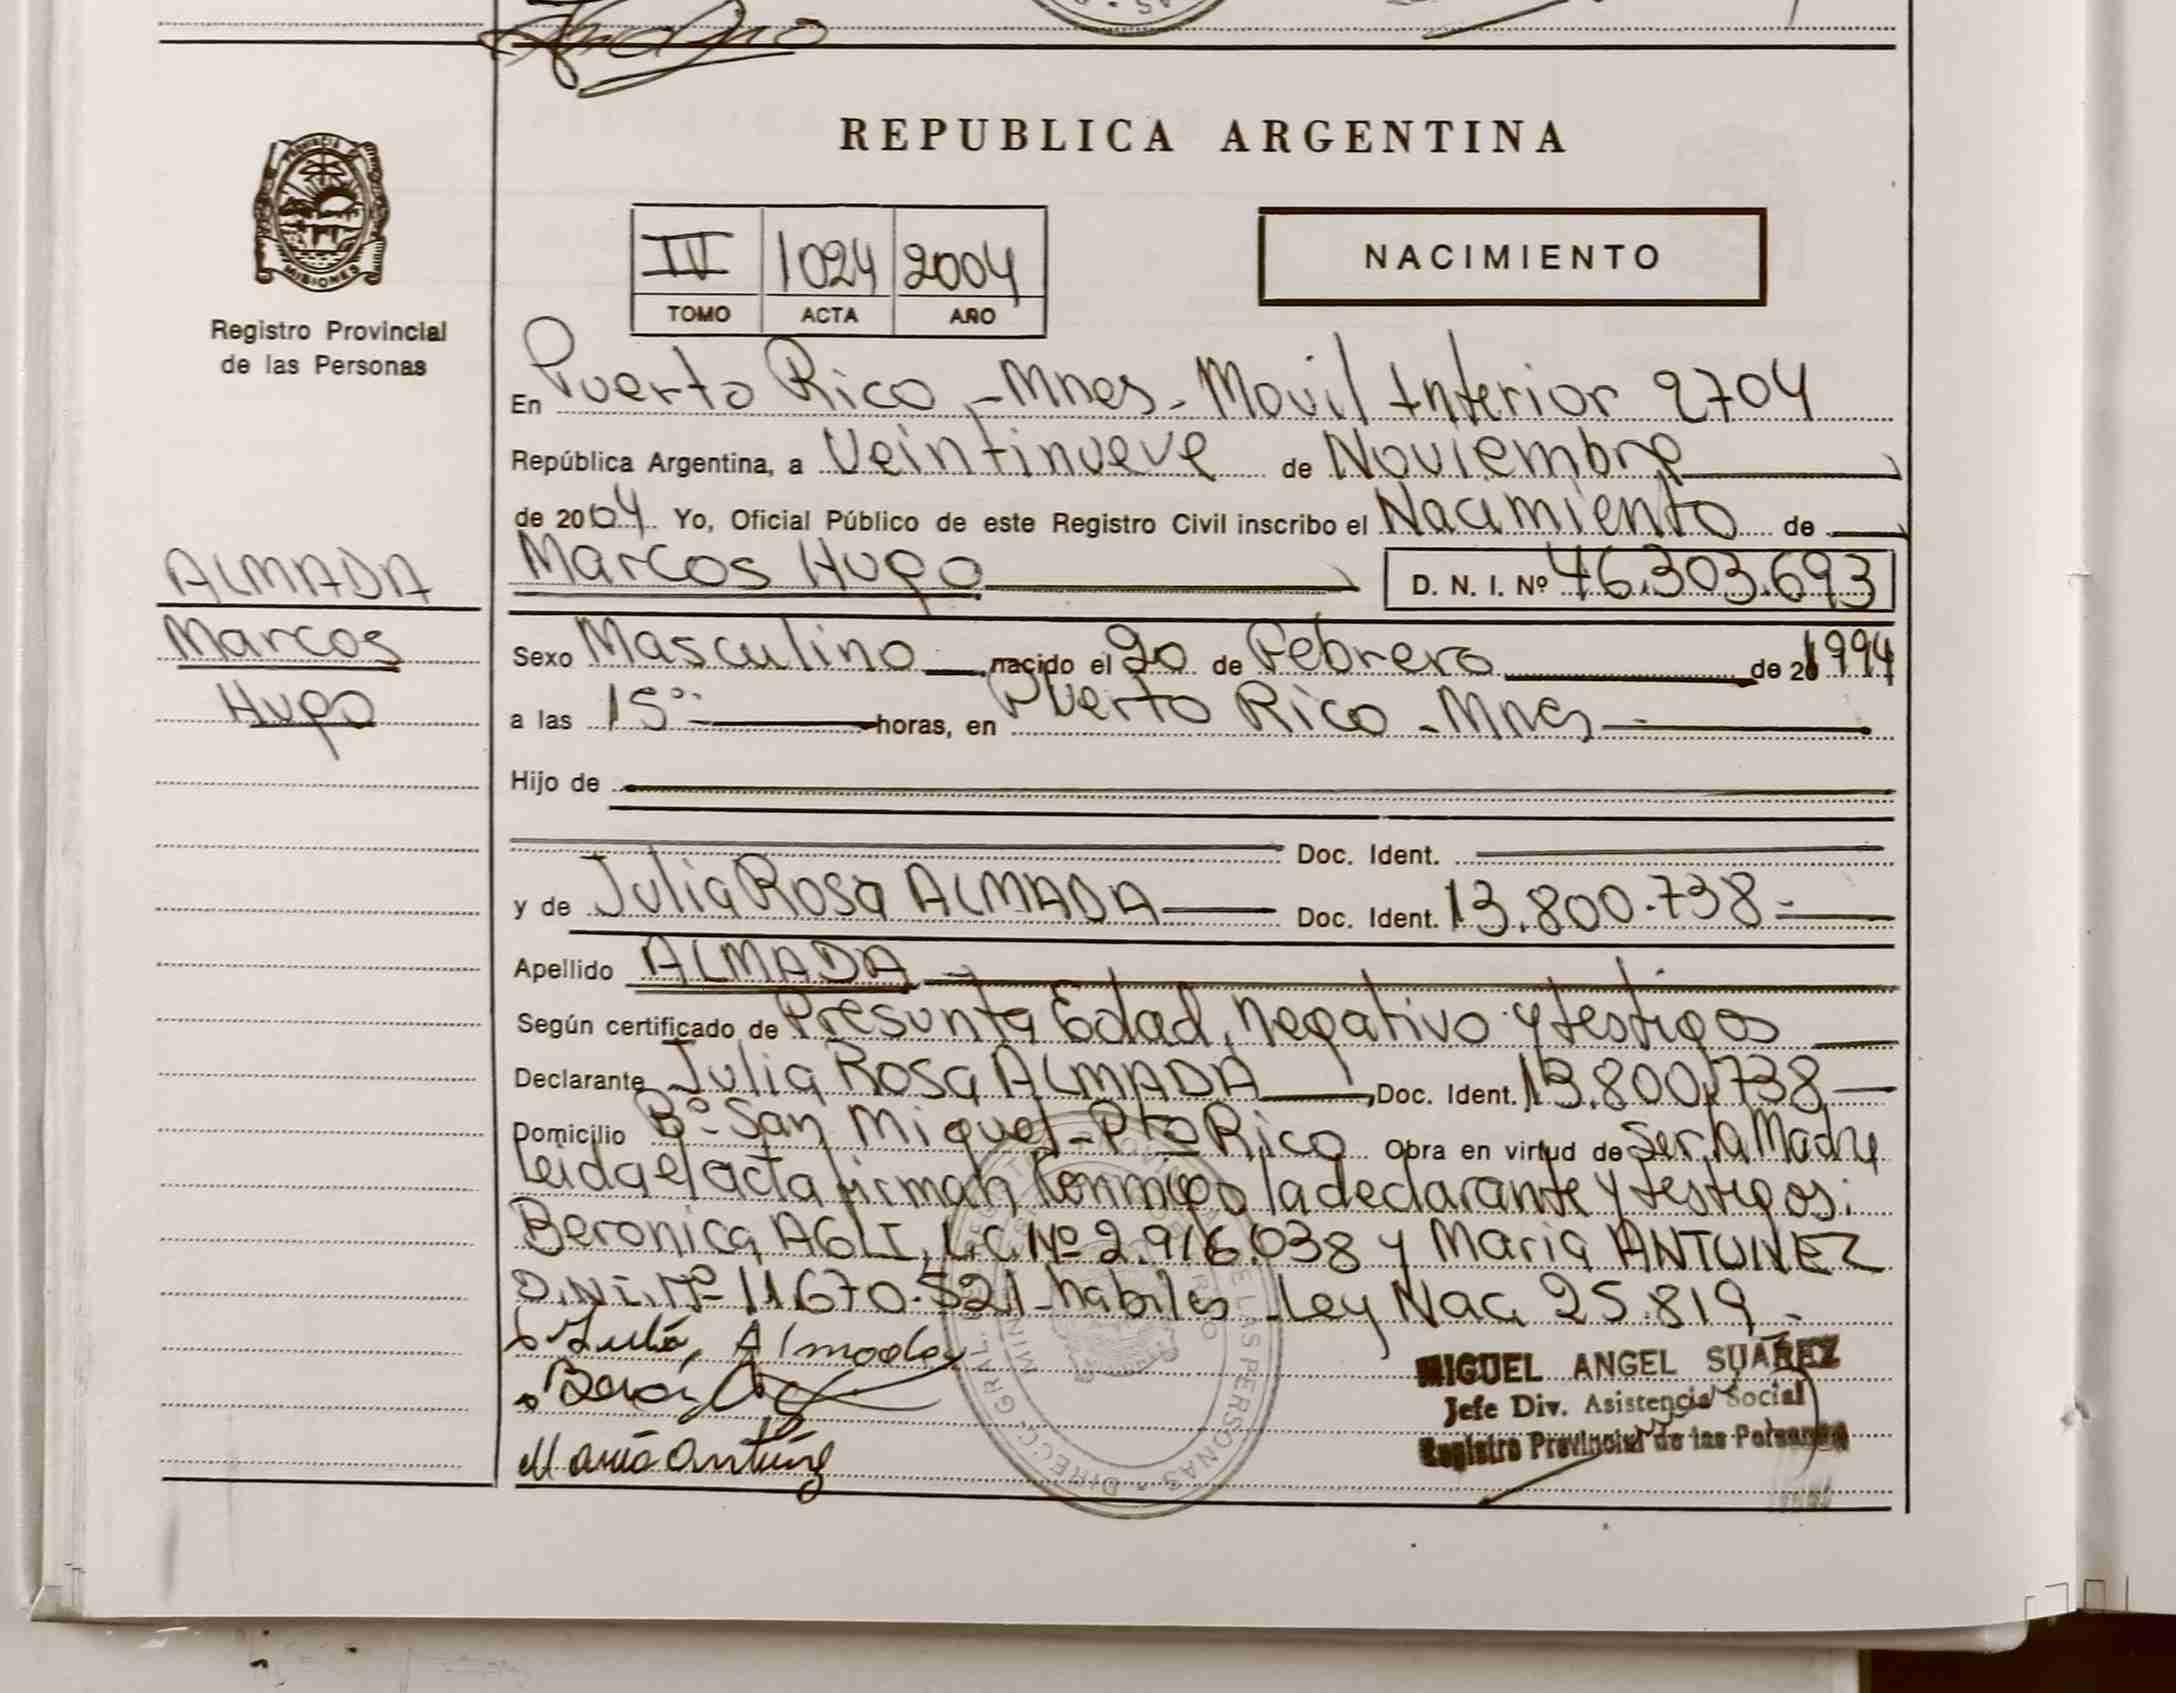 REPUBLICA ARGENTINA
PROVINCIA DE MISIONES
Registro Provincial
de las Personas
IV 1024 2004
TOMO ACTA AÑO
NACIMIENTO
En Puerto Rico - Mnes - Movil Interior 2704
República Argentina, a Veintinueve de Noviembre
de 2004 Yo, Oficial Público de este Registro Civil inscribo el Nacimiento de
Marcos Hugo D. N. I. Nº 46.303.693
ALMADA
Marcos
Hugo
Sexo Masculino nacido el 20 de Febrero de 1994
a las 15º horas, en Puerto Rico - Mnes
Hijo de
Doc. Ident.
y de Julia Rosa ALMADA Doc. Ident. 13.800.738
Apellido ALMADA
Según certificado de Presunta Edad, negativo y testigos
Declarante Julia Rosa ALMADA, Doc. Ident. 13.800.738
Domicilio Bº San Miguel - Pto Rico Obra en virtud de ser la Madre
leida el acta firman conmigo la declarante y testigos:
Beronica AGLI, L.C. Nº 2.916.038 y Maria ANTUNEZ
D.N.I. Nº 11.670.521 - habiles - Ley Nac. 25.819 -
Julia Almada
Maria Antunez
MIGUEL ANGEL SUAREZ
Jefe Div. Asistencia Social
Registro Provincial de las Personas